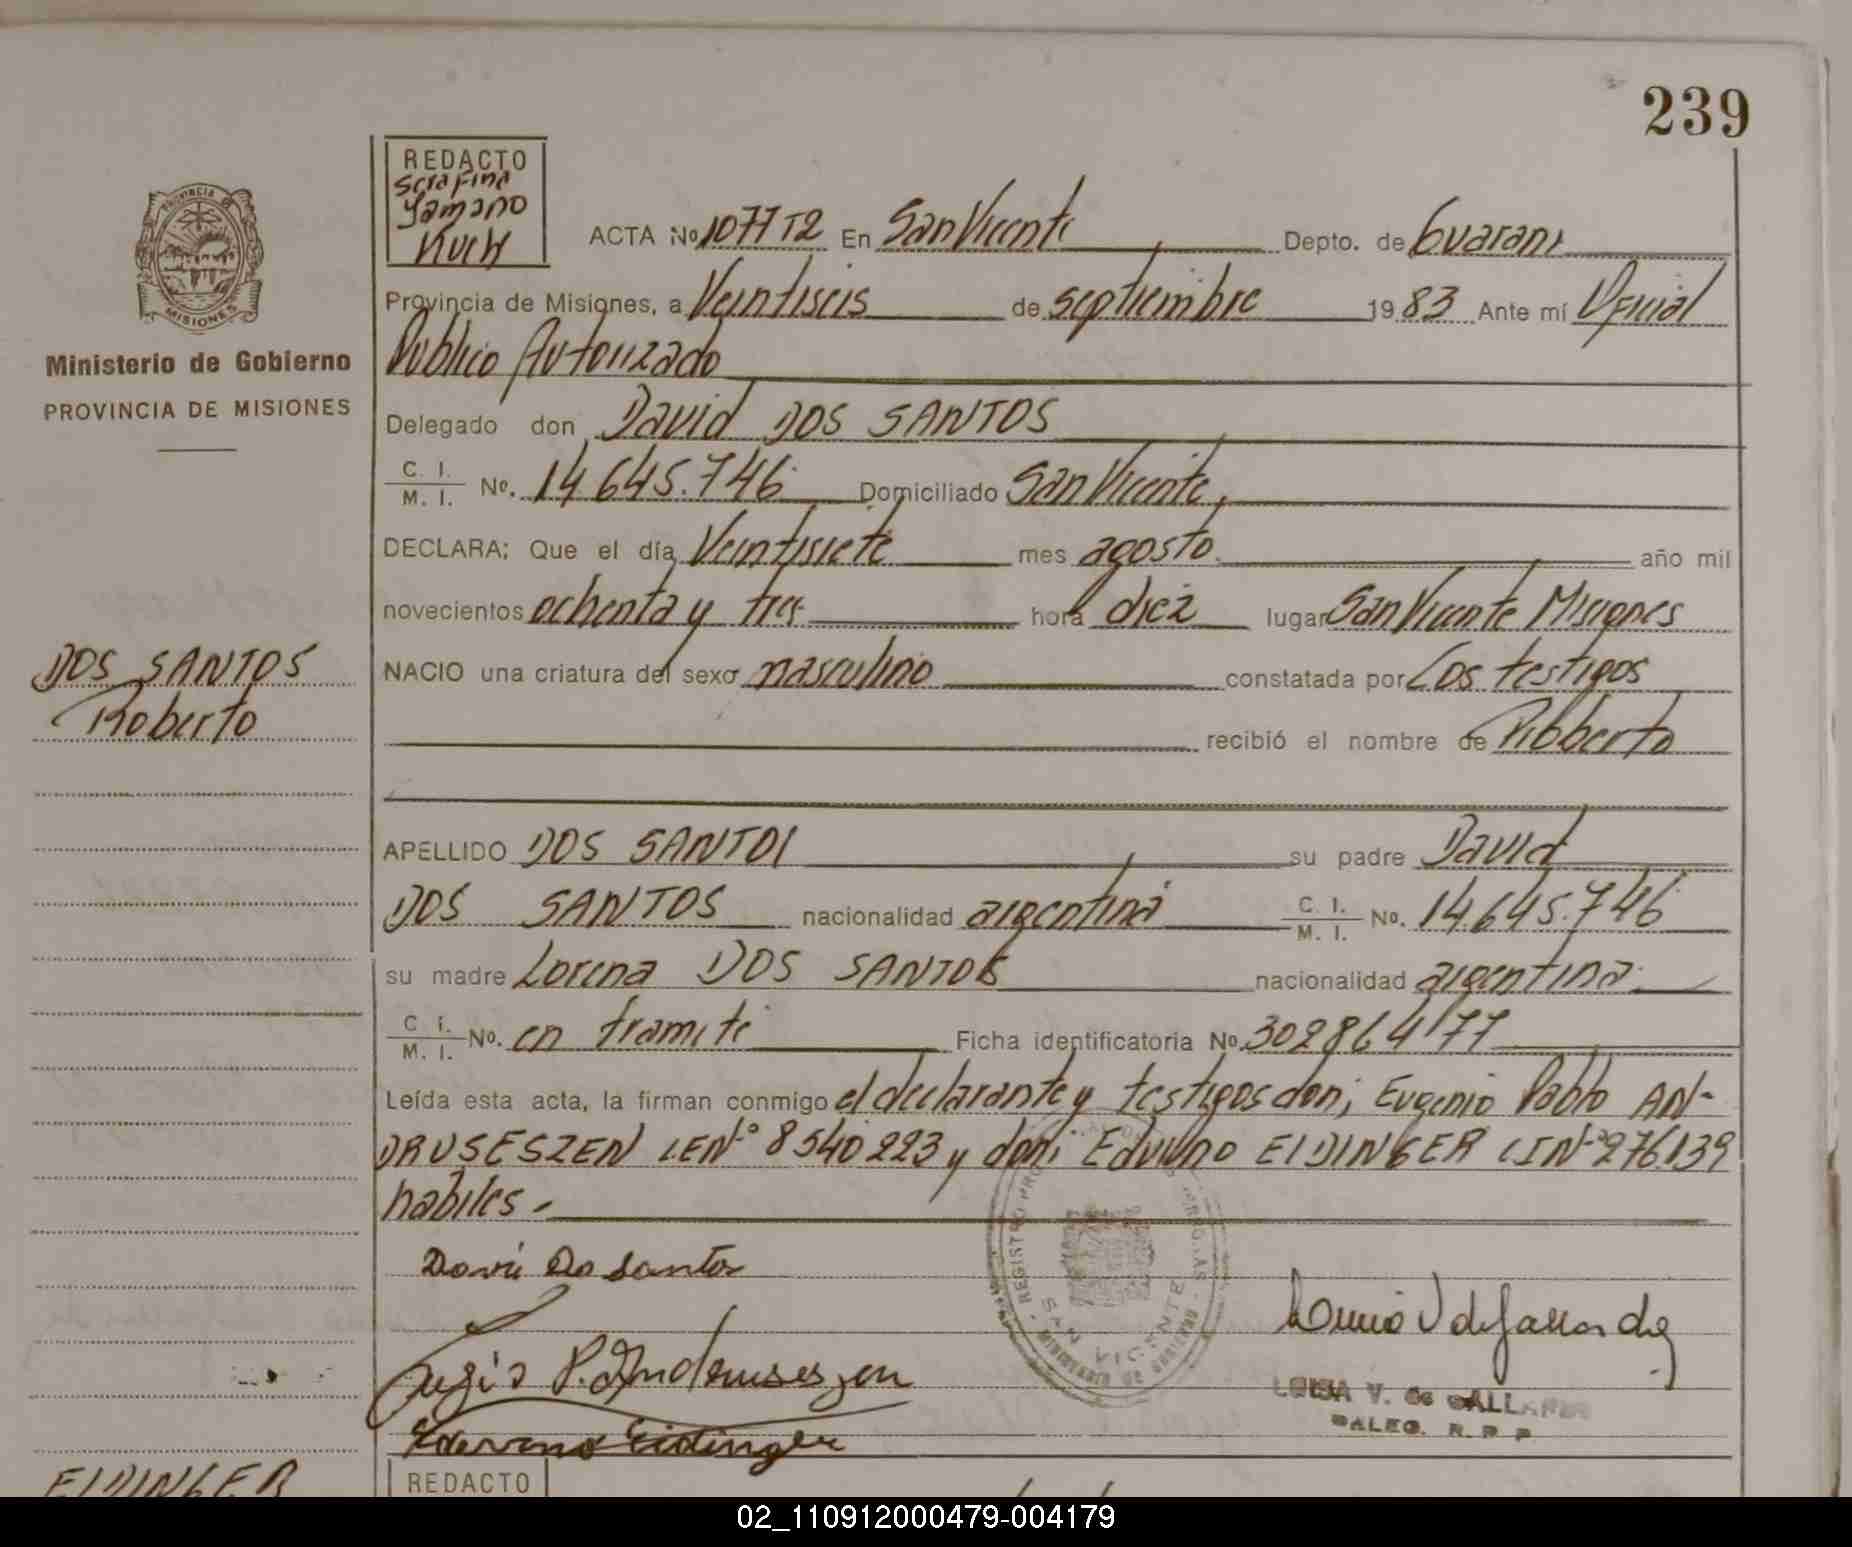 239
REDACTO
Serafina
Yamano
Kuch
PROVINCIA
MISIONES
Ministerio de Gobierno
PROVINCIA DE MISIONES
ACTA No 1077 T2 En San Vicente Depto. de Guarani
Provincia de Misiones, a Veintiseis de septiembre 1983 Ante mí Oficial
Publico Autorizado
Delegado don David DOS SANTOS
C. I. / M. I. No. 14.645.746 Domiciliado San Vicente,
DECLARA: Que el día Veintisiete mes agosto año mil
novecientos ochenta y tres hora diez lugar San Vicente Misiones
NACIO una criatura del sexo masculino constatada por Los testigos
recibió el nombre de Robberto
DOS SANTOS
Roberto
APELLIDO DOS SANTOS su padre David
DOS SANTOS nacionalidad argentina C. I. / M. I. No. 14.645.746
su madre Lorena DOS SANTOS nacionalidad argentina
C. I. / M. I. No. en tramite Ficha identificatoria No. 302864177
Leída esta acta, la firman conmigo el declarante y testigos don; Eugenio Pablo AN-
DRUSESZEN LE Nº 8540223 y don; Eduvino EIDINGER CI Nº 276.139
habiles.
SAN VICENTE
LUISA V. de GALLARDO
R. P. P.
EIDINGER
REDACTO
02_110912000479-004179